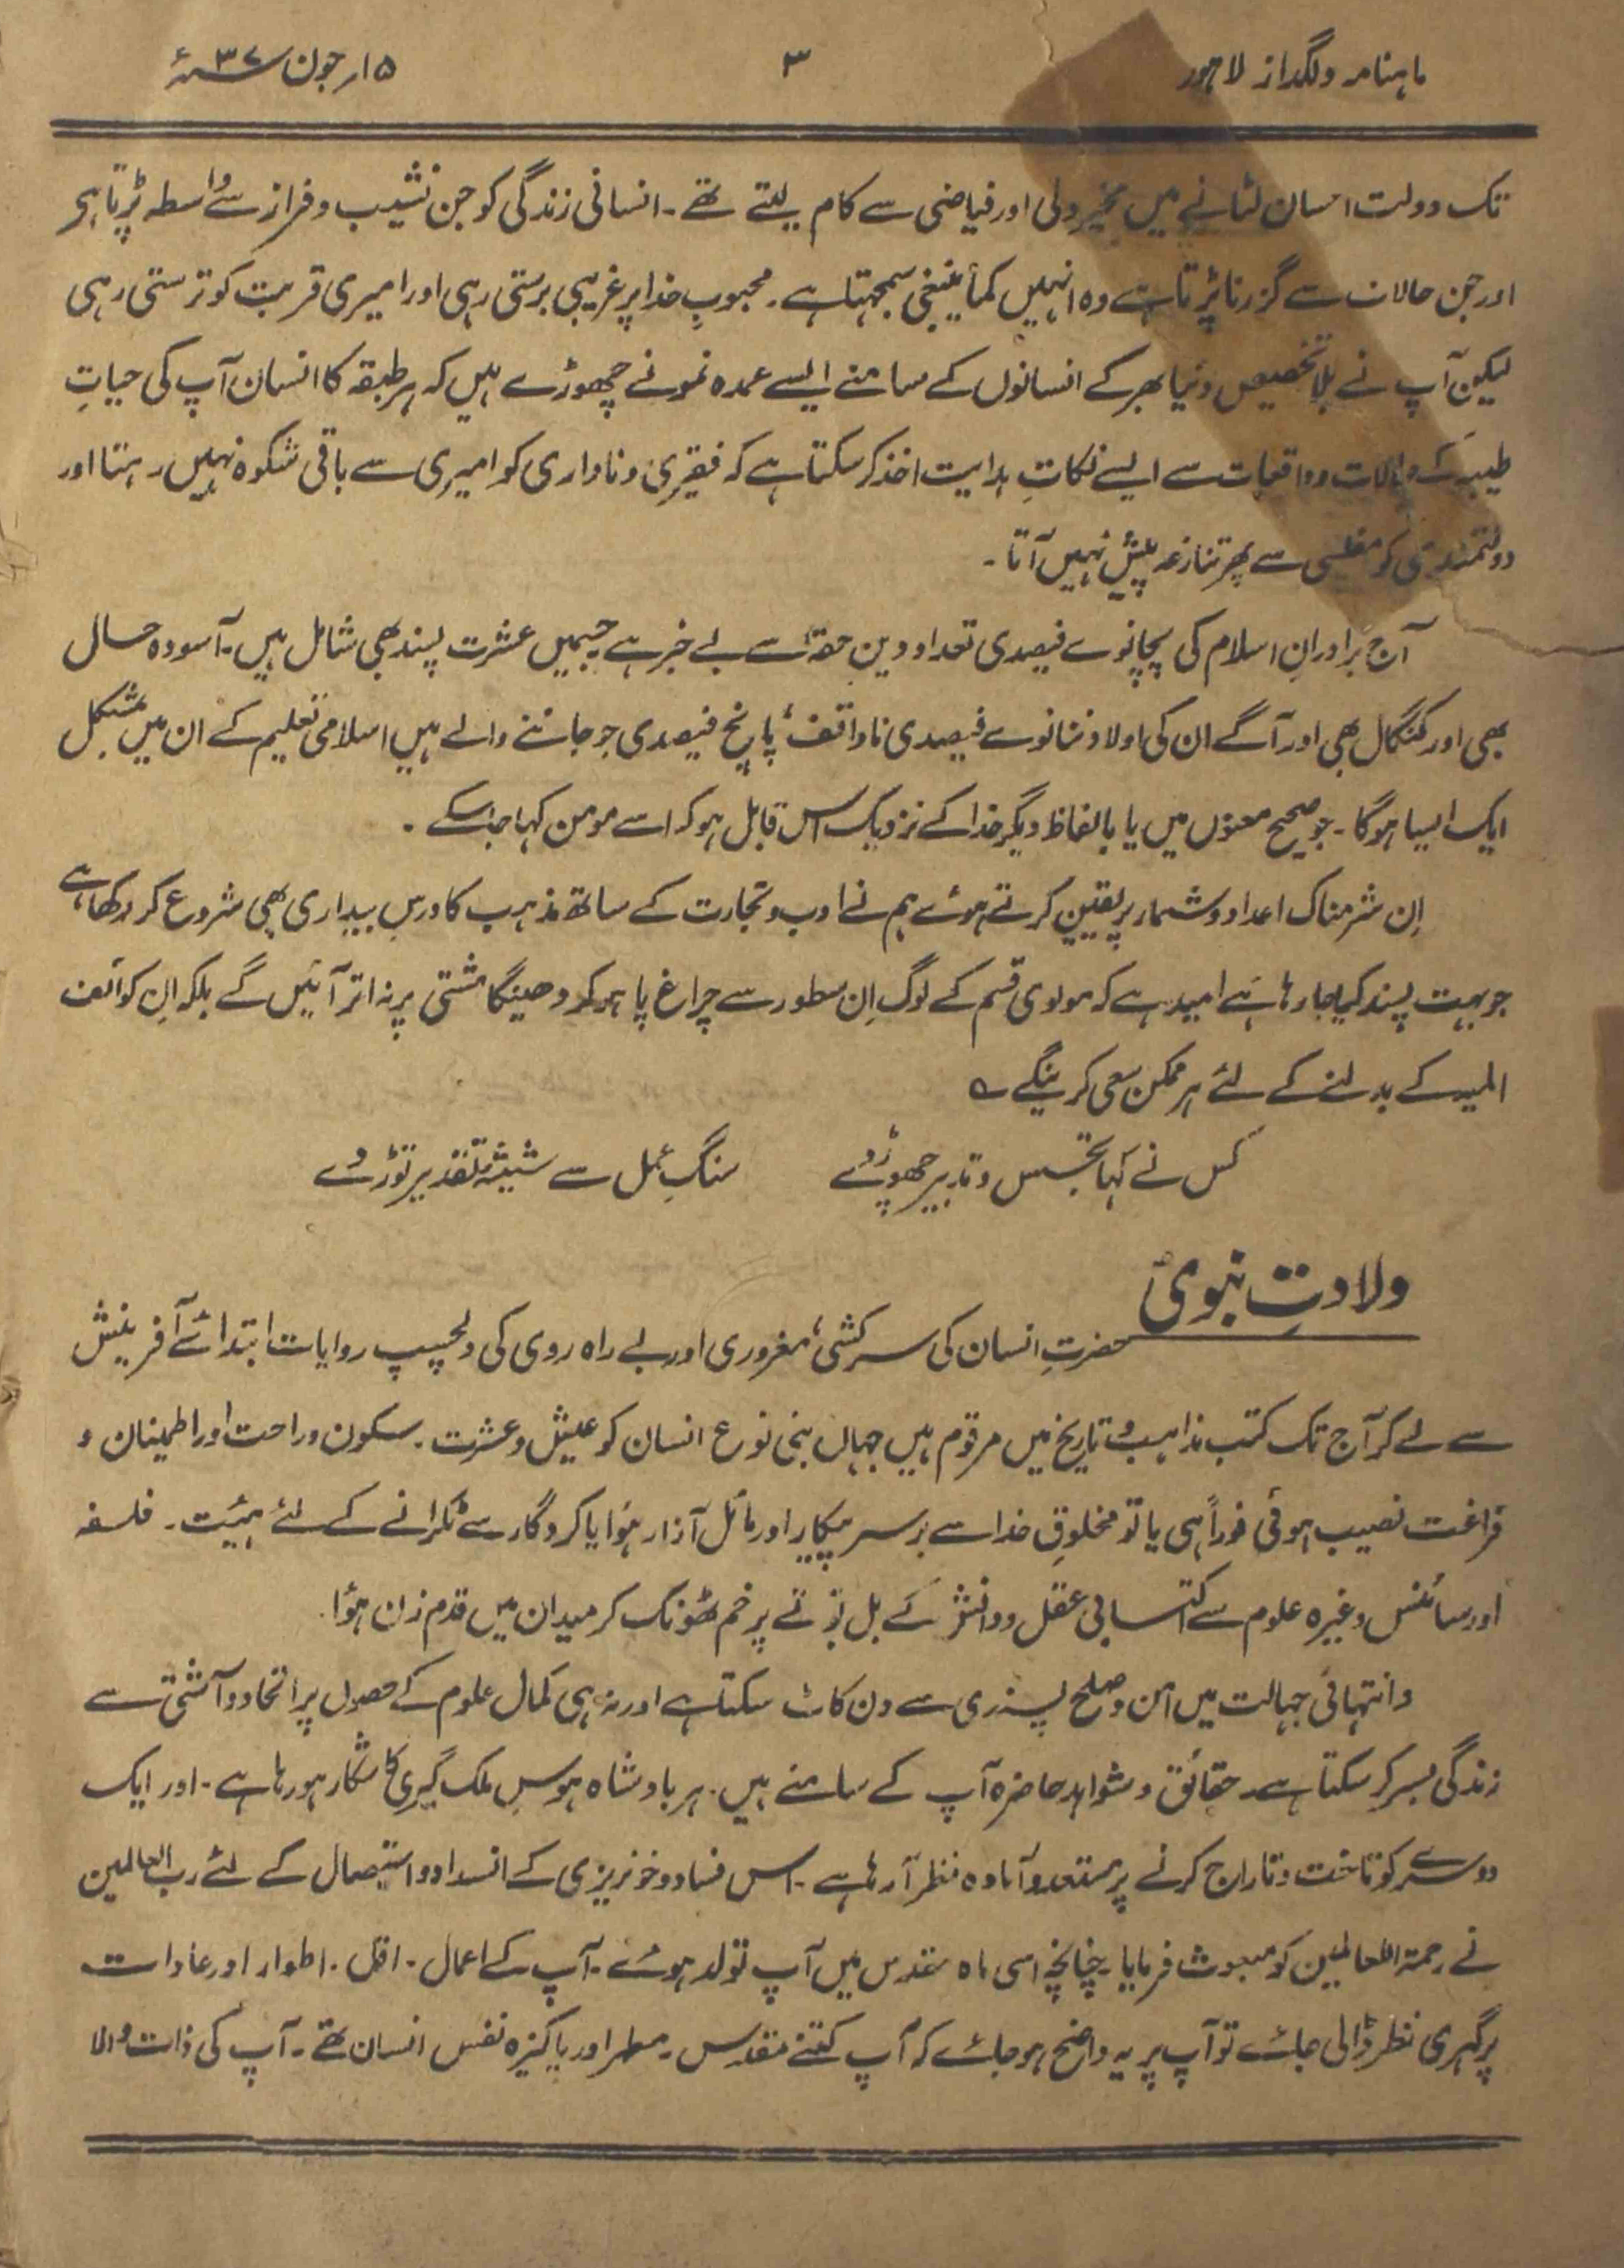 ماہنامہ دلگداز لاہور
۳
۱۵ر جون سنہ ۳۷ء
تک دولت احسان لٹانے میں مخیر دلی اور فیاضی سے کام لیتے تھے۔ انسانی زندگی کو جن نشیب و فراز سے واسطہ پڑتا ہی
اور جن حالات سے گزرنا پڑتا ہے وہ انہیں کمأ ینبغی سمجہتا ہے۔ محبوبِ خدا پر غریبی برستی رہی اور امیری قربت کو ترستی رہی
لیکن آپ نے بلا تخصیص دنیا بھر کے انسانوں کے سامنے ایسے عمدہ نمونے چھوڑے ہیں کہ ہر طبقہ کا انسان آپ کی حیاتِ
طیبہ کے حالات و واقعات سے ایسے نکاتِ ہدایت اخذ کر سکتا ہے کہ فقیری و ناداری کو امیری سے باقی شکوہ نہیں رہتا اور
دولتمندی کو مفلسی سے پھر تنازعہ پیش نہیں آتا۔
آج برادرانِ اسلام کی پچانوے فیصدی تعداد دینِ حقہ سے بے خبر ہے جسمیں عشرت پسند بھی شامل ہیں۔ آسودہ حال
بھی اور کنگال بھی اور آگے ان کی اولاد ننانوے فیصدی ناواقف، پانچ فیصدی جو جاننے والے ہیں اسلامی تعلیم کے ان میں بمشکل
ایک ایسا ہوگا۔ جو صحیح معنوں میں یا بالفاظ دیگر خدا کے نزدیک اس قابل ہو کہ اسے مومن کہا جاسکے۔
اِن شرمناک اعداد و شمار پر یقین کرتے ہوئے ہم نے ادب و تجارت کے ساتھ مذہب کا درسِ بیداری بھی شروع کر رکھا ہے
جو بہت پسند کیا جا رہا ہے امید ہے کہ مولوی قسم کے لوگ اِن سطور سے چراغ پا ہو کر دھینگا مشتی پر نہ اتر آئیں گے بلکہ اِن کوائف
المیہ کے بدلنے کے لئے ہر ممکن سعی کرینگے ؎
کس نے کہا تجسس و تدبیر چھوڑ دے سنگِ عمل سے شیشۂ تقدیر توڑ دے
ولادتِ نبوی ؐ
حضرتِ انسان کی سرکشی، مغروری اور بے راہ روی کی دلچسپ روایات ابتدائے آفرینش
سے لے کر آج تک کتب مذاہب و تاریخ میں مرقوم ہیں جہاں بنی نوع انسان کو عیش و عشرت۔ سکون و راحت اور اطمینان و
فراغت نصیب ہوئی فوراً ہی یا تو مخلوقِ خدا سے برسر پیکار اور مائل آزار ہوٗا یا کردگار سے ٹکرانے کے لئے ہیئت۔ فلسفہ
اور سائنس وغیرہ علوم سے اکتسابی عقل و دانش کے بل بوتے پر خم ٹھونک کر میدان میں قدم زن ہوٗا۔
وانتہائی جہالت میں امن و صلح پسندی سے دن کاٹ سکتا ہے اور نہ ہی کمال علوم کے حصول پر اتحاد و آشتی سے
زندگی بسر کر سکتا ہے۔ حقائق و شواہد حاضرہ آپ کے سامنے ہیں۔ ہر بادشاہ ہوسِ ملک گیری کا شکار ہو رہا ہے۔ اور ایک
دوسرے کو تاخت و تاراج کرنے پر مستعد و آمادہ نظر آرہا ہے۔ اس فساد و خونریزی کے انسداد و استیصال کے لئے رب العالمین
نے رحمۃ اللعالمین کو مبعوث فرمایا۔ چنانچہ اسی ماہ مقدس میں آپ تولد ہوئے۔ آپ کے اعمال۔ اطوار اور عادات
پر گہری نظر ڈالی جائے تو آپ پر یہ واضح ہو جائے کہ آپ کتنے مقدس۔ مطہر اور پاکیزہ نفس انسان تھے۔ آپ کی ذات والا